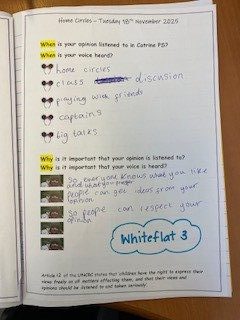 Home Circles – Tuesday 18th November 2025
When is your opinion listened to in Catrine PS?
When is your voice heard?
home circles
class discussion
playing with friends
captains
big talks
Why is it important that your opinion is listened to?
Why is it important that your voice is heard?
So everyone knows what you like
and what you prefer
people can get ideas from your
opinion
so people can respect your
opinion
Whiteflat 3
Article 12 of the UNCRC states that children have the right to express their
views freely on all matters affecting them, and that their views and
opinions should be listened to and taken seriously.